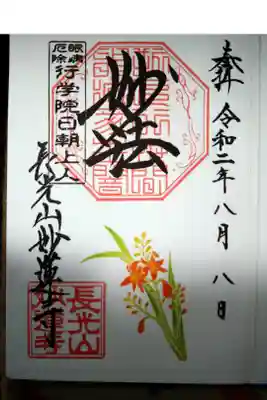 奉拝 令和二年八月八日
妙法
眼病
厄除
行学院日朝上人
長光山妙蓮寺
長光山
妙蓮寺